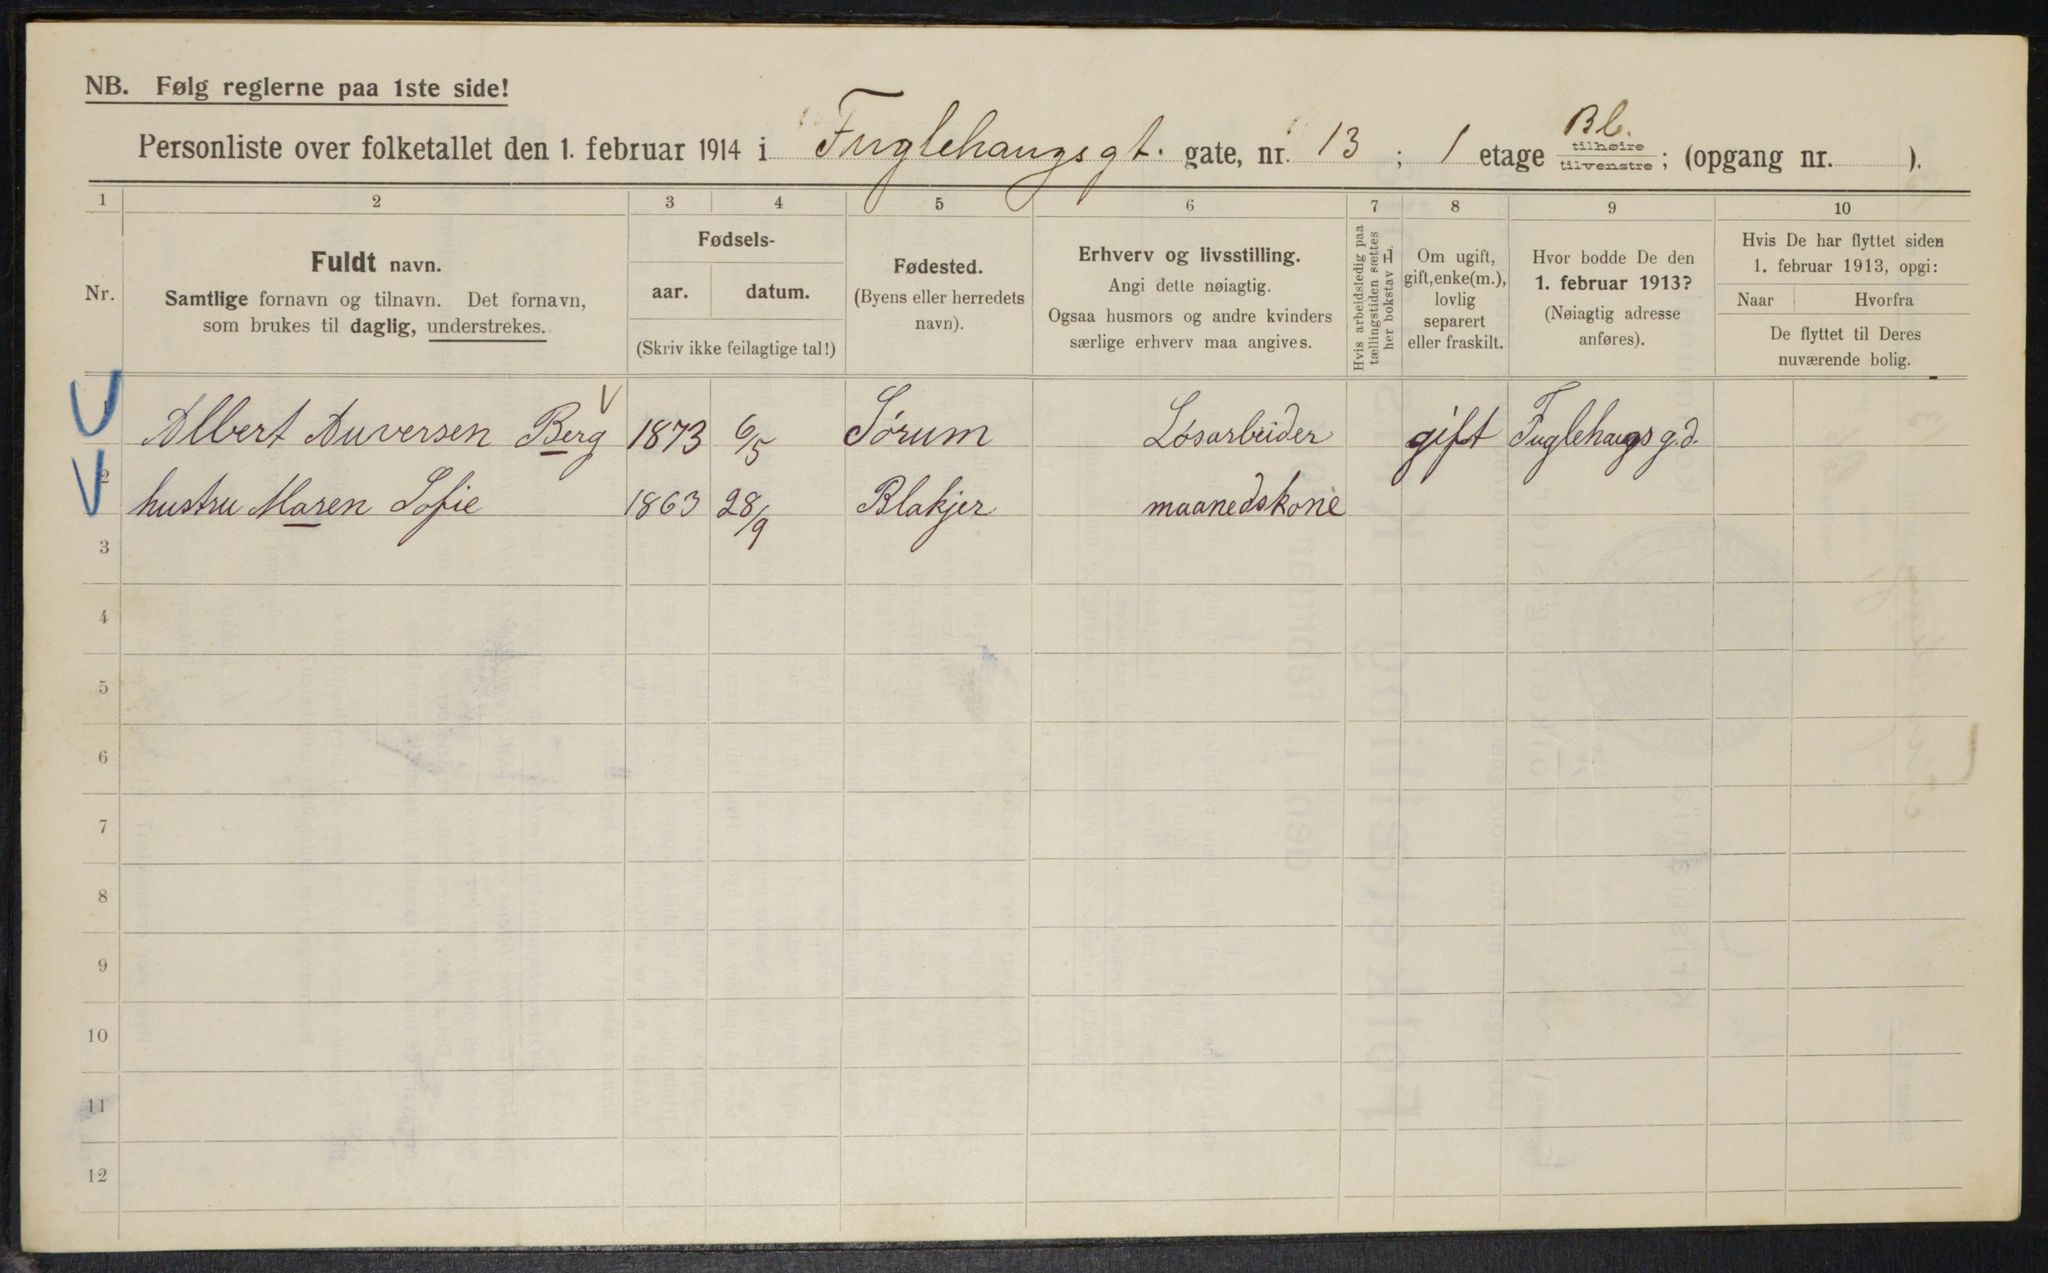 NB. Følg reglerne paa 1ste side!
Personliste over folketallet den 1. februar 1914 i Fuglehaugsgt. gate, nr. 13 ; 1 etage Bb. tilhøire tilvenstre ; (opgang nr. ).
1 2 3 4 5 6 7 8 9 10
Nr.
Fuldt navn.
Samtlige fornavn og tilnavn. Det fornavn,
som brukes til daglig, understrekes.
Fødsels-
aar. datum.
(Skriv ikke feilagtige tal!)
Fødested.
(Byens eller herredets
navn).
Erhverv og livsstilling.
Angi dette nøiagtig.
Ogsaa husmors og andre kvinders
særlige erhverv maa angives.
Hvis arbeidsledig paa
tællingstiden sættes
her bokstav L.
Om ugift,
gift, enke(m.),
lovlig
separert
eller fraskilt.
Hvor bodde De den
1. februar 1913?
(Nøiagtig adresse
anføres).
Hvis De har flyttet siden
1. februar 1913, opgi:
Naar Hvorfra
De flyttet til Deres
nuværende bolig.
1 Albert Berg 1873 6/5 Sørum Løsarbeider gift Fuglehaugs g.d.
2 hustru Maren Sofie 1863 28/9 Blakjer maanedskone
3
4
5
6
7
8
9
10
11
12